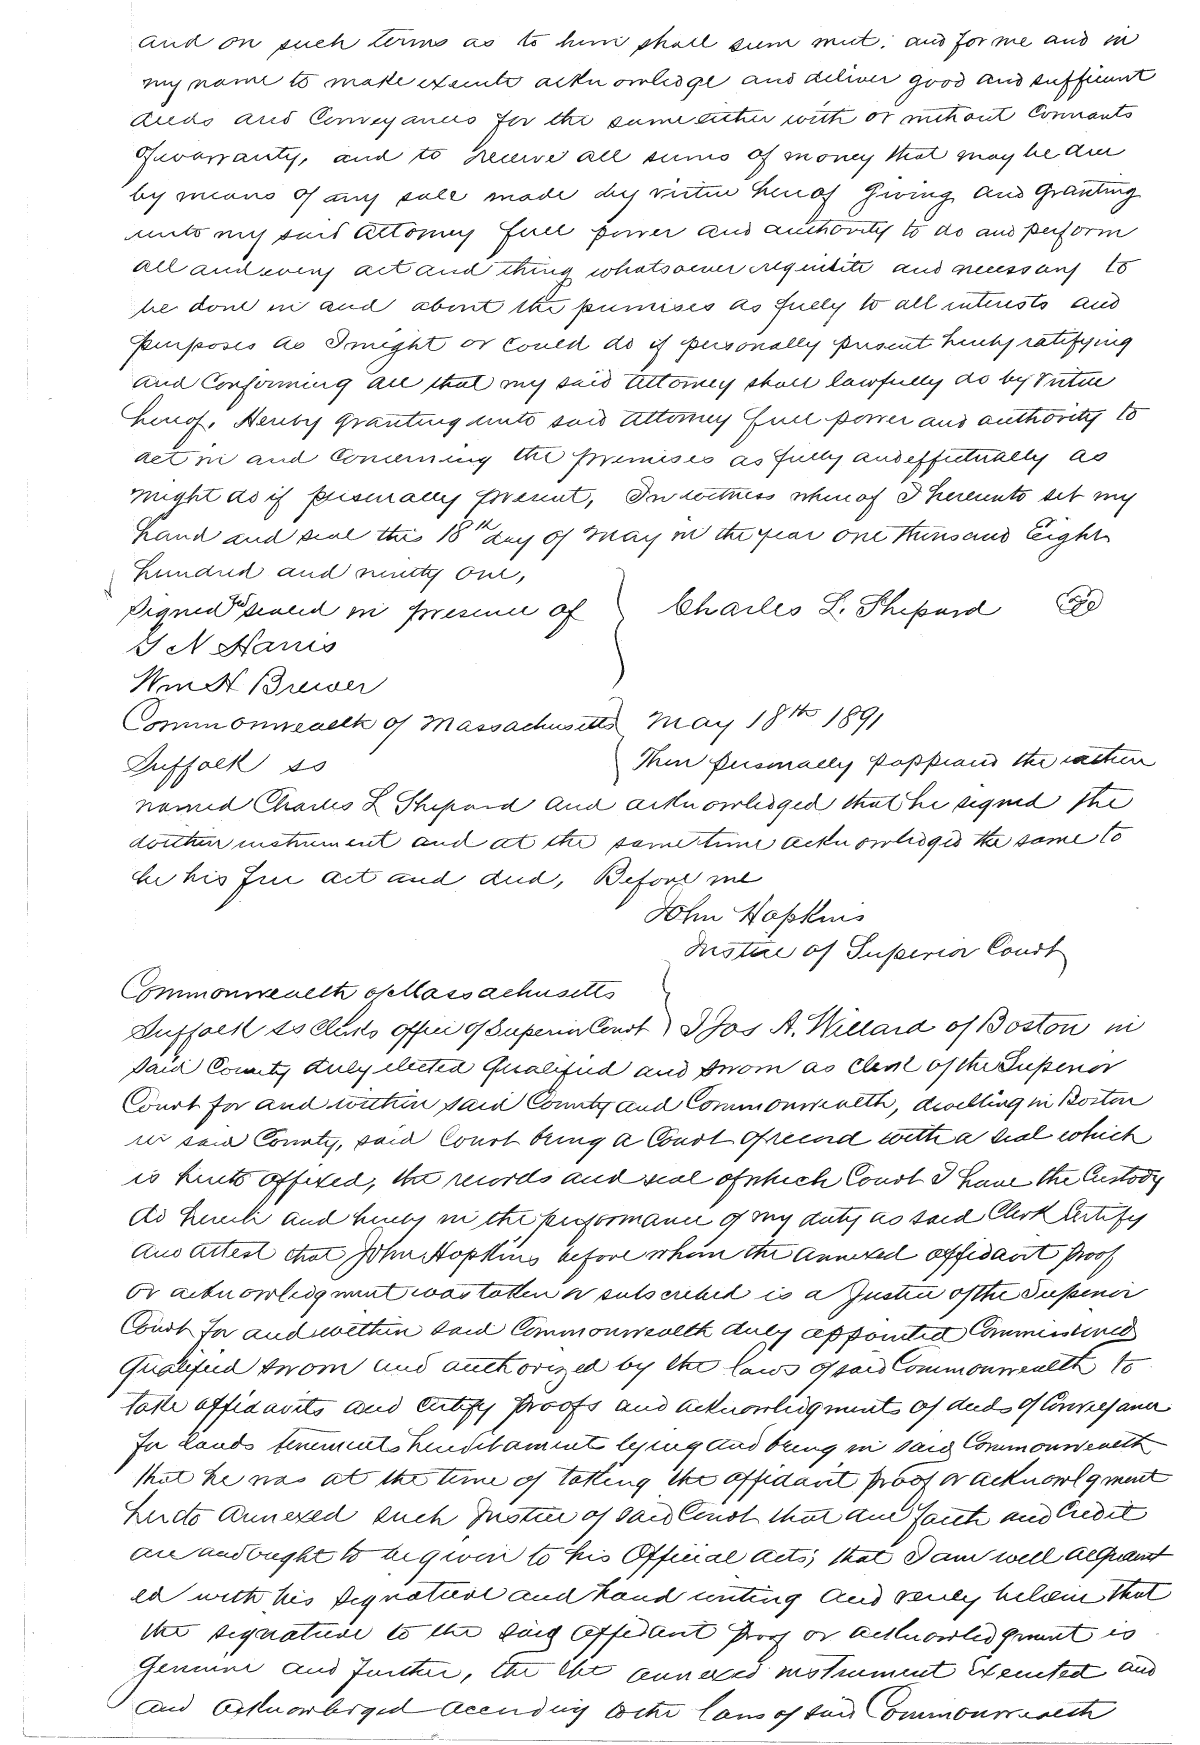 and on such terms as to him shall seem meet; and for me and in
my name to make execute acknowledge and deliver good and sufficient
deeds and Conveyances for the same either with or without Covenants
of warranty, and to receive all sums of money that may be due
by means of any sale made by virtue hereof Giving and Granting
unto my said Attorney full power and authority to do and perform
all and every act and thing whatsoever requisite and necessary to
be done in and about the premises as fully to all interests and
purposes as I might or could do if personally present hereby ratifying
and Confirming all that my said Attorney shall lawfully do by virtue
hereof. Hereby granting unto said Attorney full power and authority to
act in and Concerning the premises as fully and effectually as
might do if personally present, In witness whereof I hereunto set my
hand and seal this 18th day of May in the year one thousand Eight
hundred and ninety one,
Signed & sealed in presence of Charles L. Shepard
G N Harris
Wm H Brewer
Commonwealth of Massachusetts May 18th 1891
Suffolk ss Then personally appeared the within
named Charles L Shepard and acknowledged that he signed the
within instrument and at the same time acknowledged the same to
be his free act and deed, Before me
John Hopkins
Justice of Superior Court
Commonwealth of Massachusetts
Suffolk ss Clerks office of Superior Court I Jos A. Willard of Boston in
said County duly elected Qualified and sworn as Clerk of the Superior
Court for and within said County and Commonwealth, dwelling in Boston
in said County, said Court being a Court of record with a seal which
is hereto affixed, the records and seal of which Court I have the Custody
do herein and hereby in the performance of my duty as said Clerk Certify
and attest that John Hopkins before whom the annexed affidavit proof
or acknowledgment was taken or subscribed is a Justice of the Superior
Court for and within said Commonwealth duly appointed Commissioned
Qualified sworn and authorized by the laws of said Commonwealth to
take affidavits and certify proofs and acknowledgments of deeds of Conveyance
for lands tenements hereditaments lying and being in said Commonwealth
that he was at the time of taking the affidavit proof or acknowlgment
hereto annexed such Justice of said Court that due faith and Credit
are and ought to be given to his Official acts; that I am well acquaint
ed with his signature and hand writing and verily believe that
the signature to the said affidavit proof or acknowledgment is
Genuine and further, the the annexed instrument Executed and
and acknowledged according to the laws of said Commonwealth